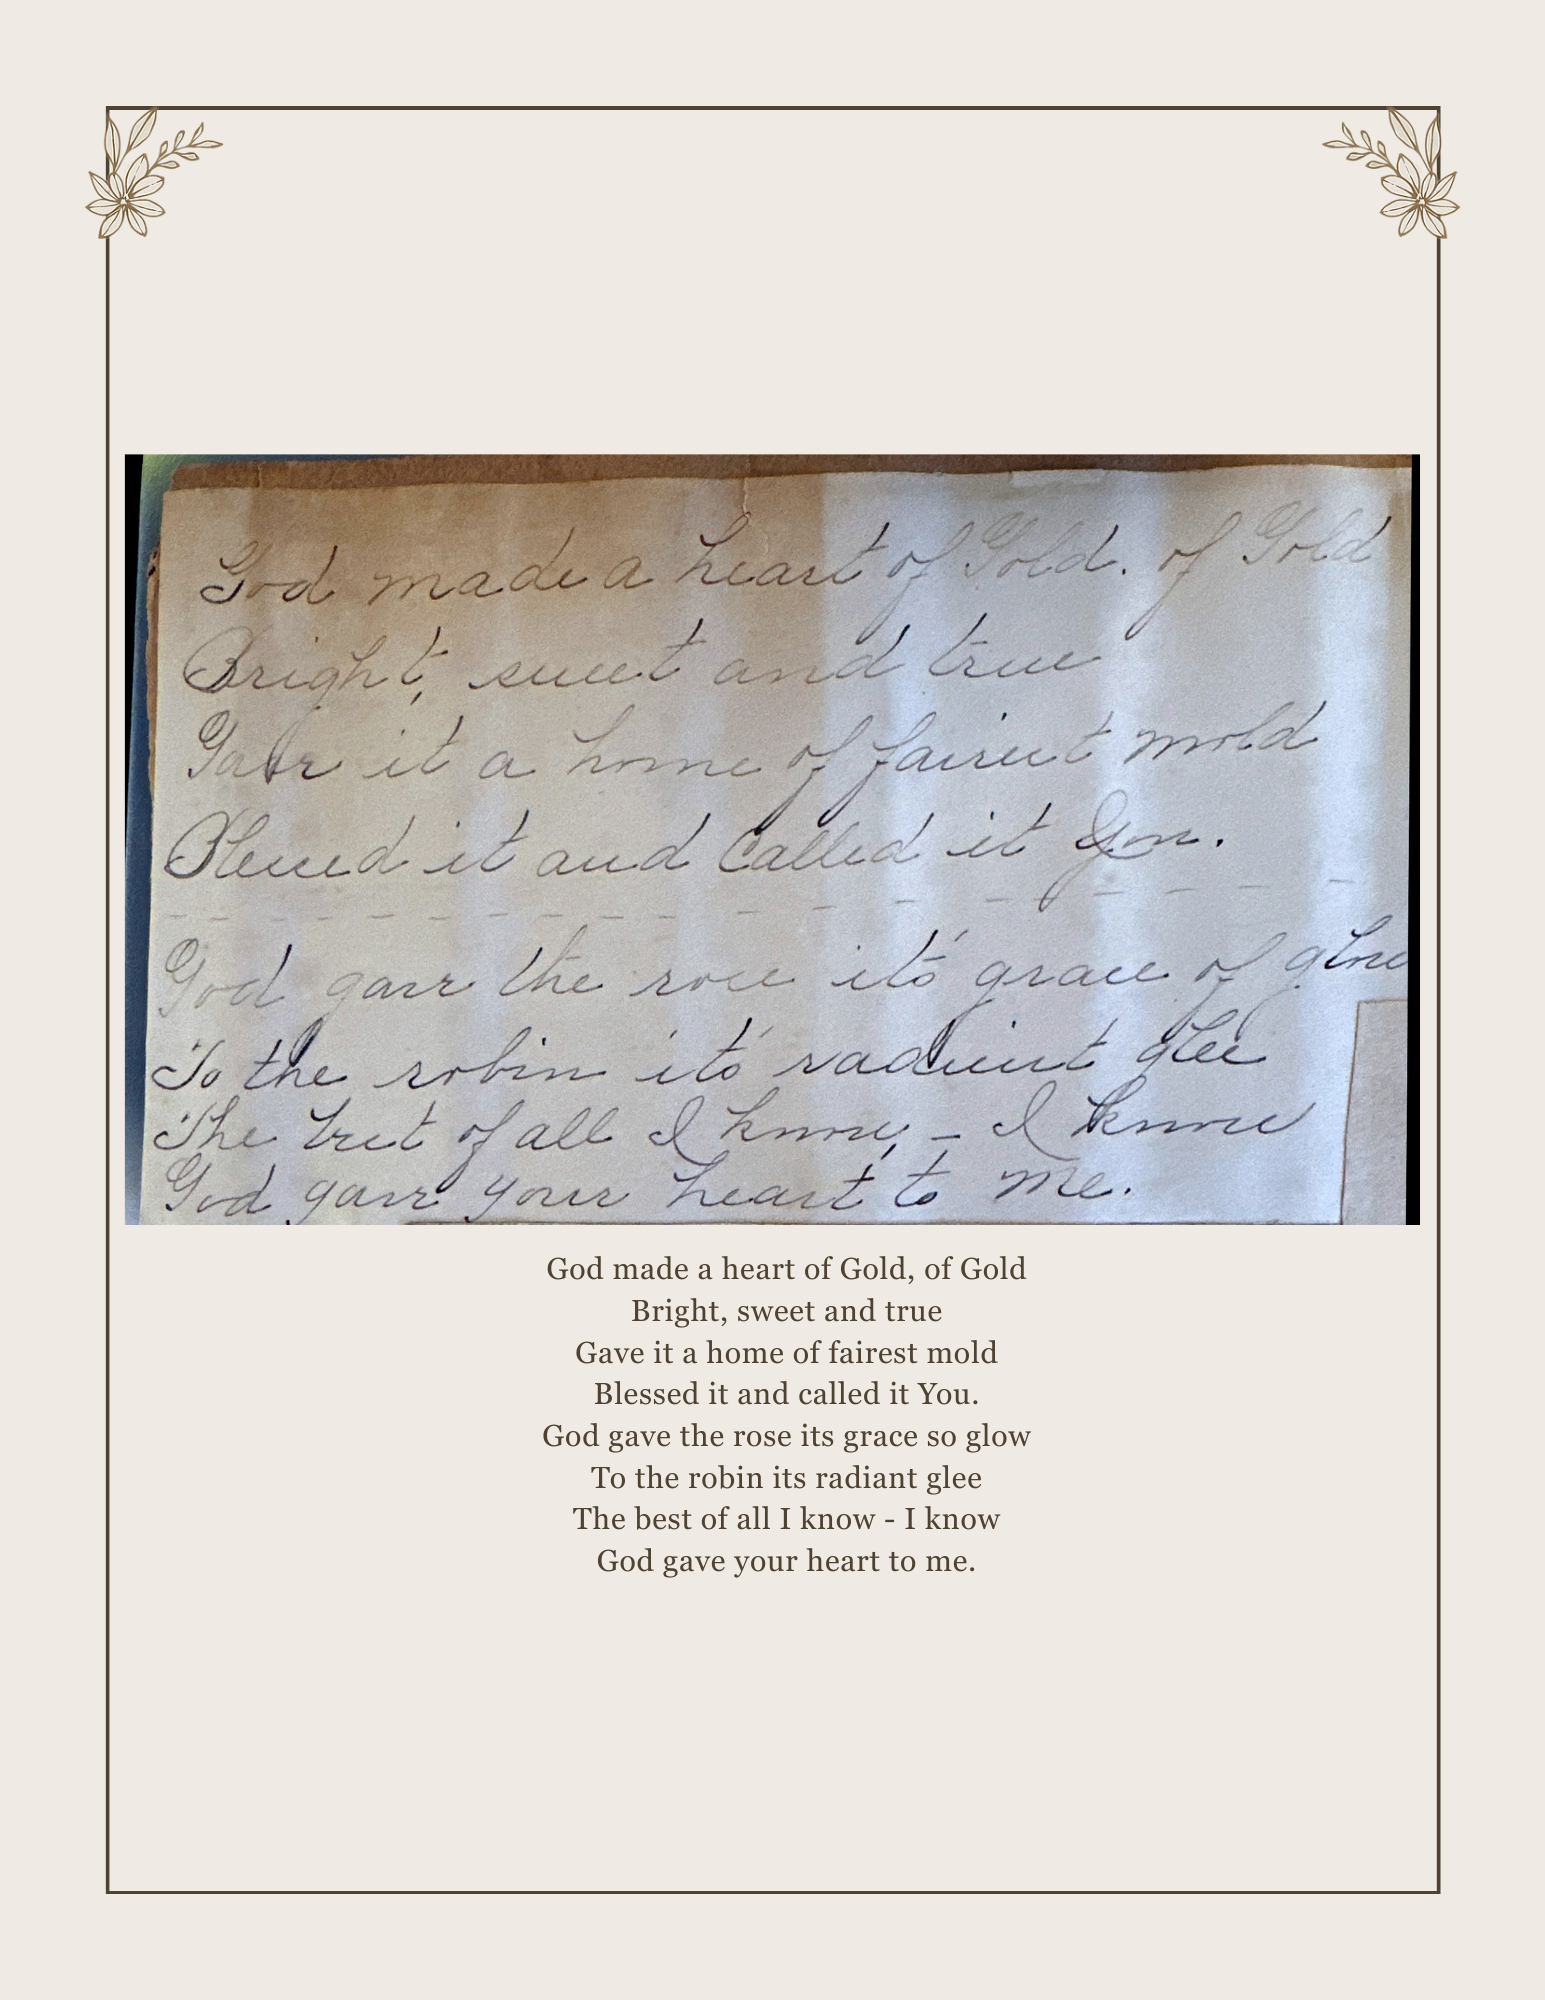 God made a heart of Gold. of Gold
Bright, sweet and true
Gave it a home of fairest mold
Blessed it and Called it You.
God gave the rose it's grace of glow
To the robin it's radient glee
The best of all I know, - I know
God gave your heart to me.
God made a heart of Gold, of Gold
Bright, sweet and true
Gave it a home of fairest mold
Blessed it and called it You.
God gave the rose its grace so glow
To the robin its radiant glee
The best of all I know - I know
God gave your heart to me.